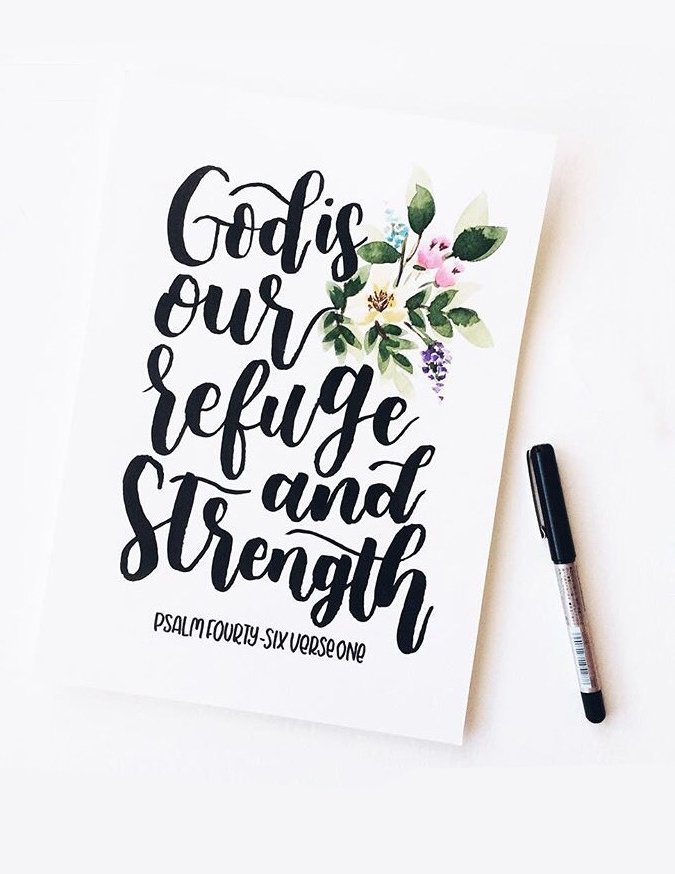 God is
our
refuge
and
Strength
PSALM FOURTY-SIX VERSE ONE